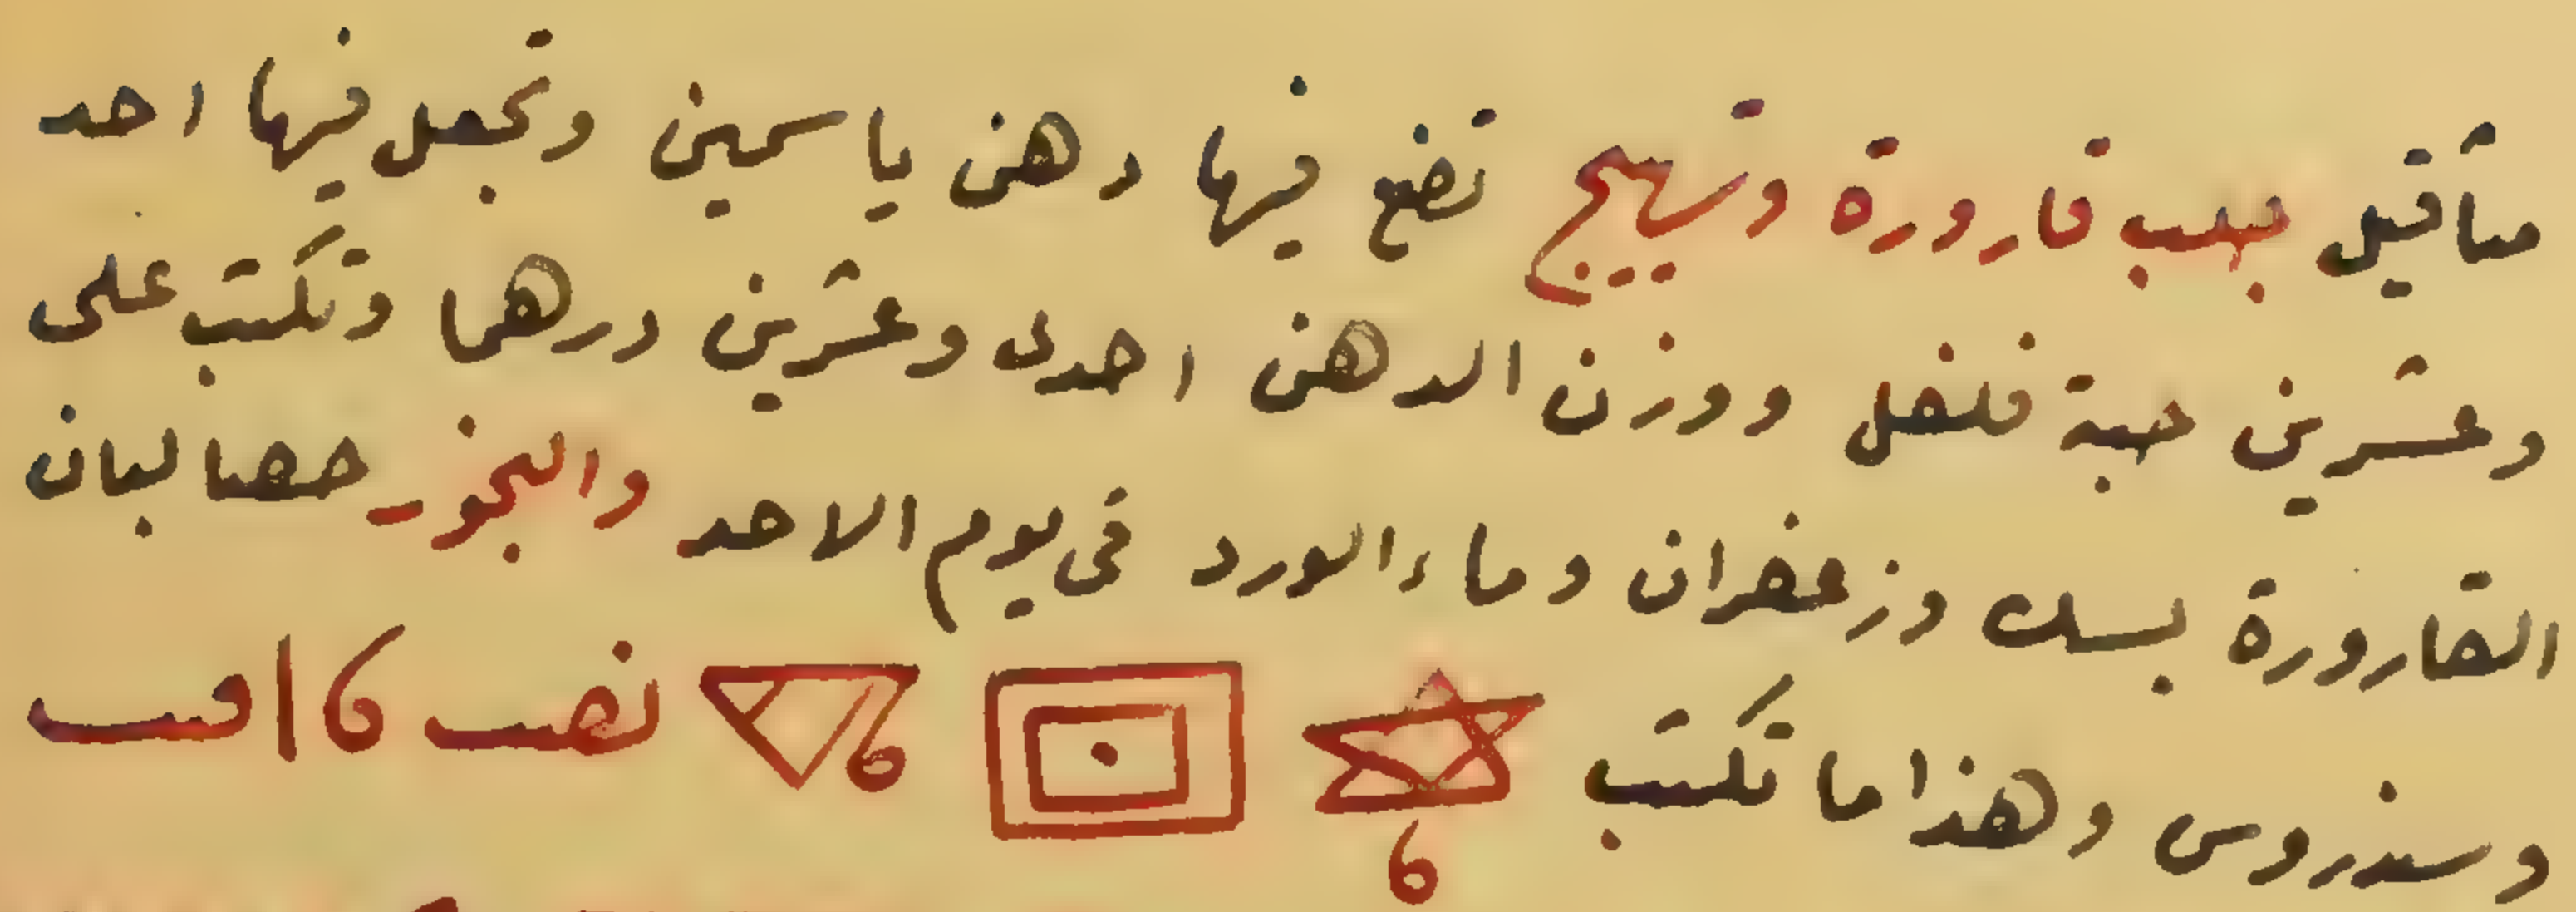 مثاقيل جلب قارورة وتهيج تضع فيها دهن ياسمين وتجعل فيها احد
وعشرين حبة فلفل ووزن الدهن احدى وعشرين درهما وتكتب على
القارورة بسك وزعفران وماء الورد فى يوم الاحد والبخور حصا لبان
وسندروس وهذا ما تكتب